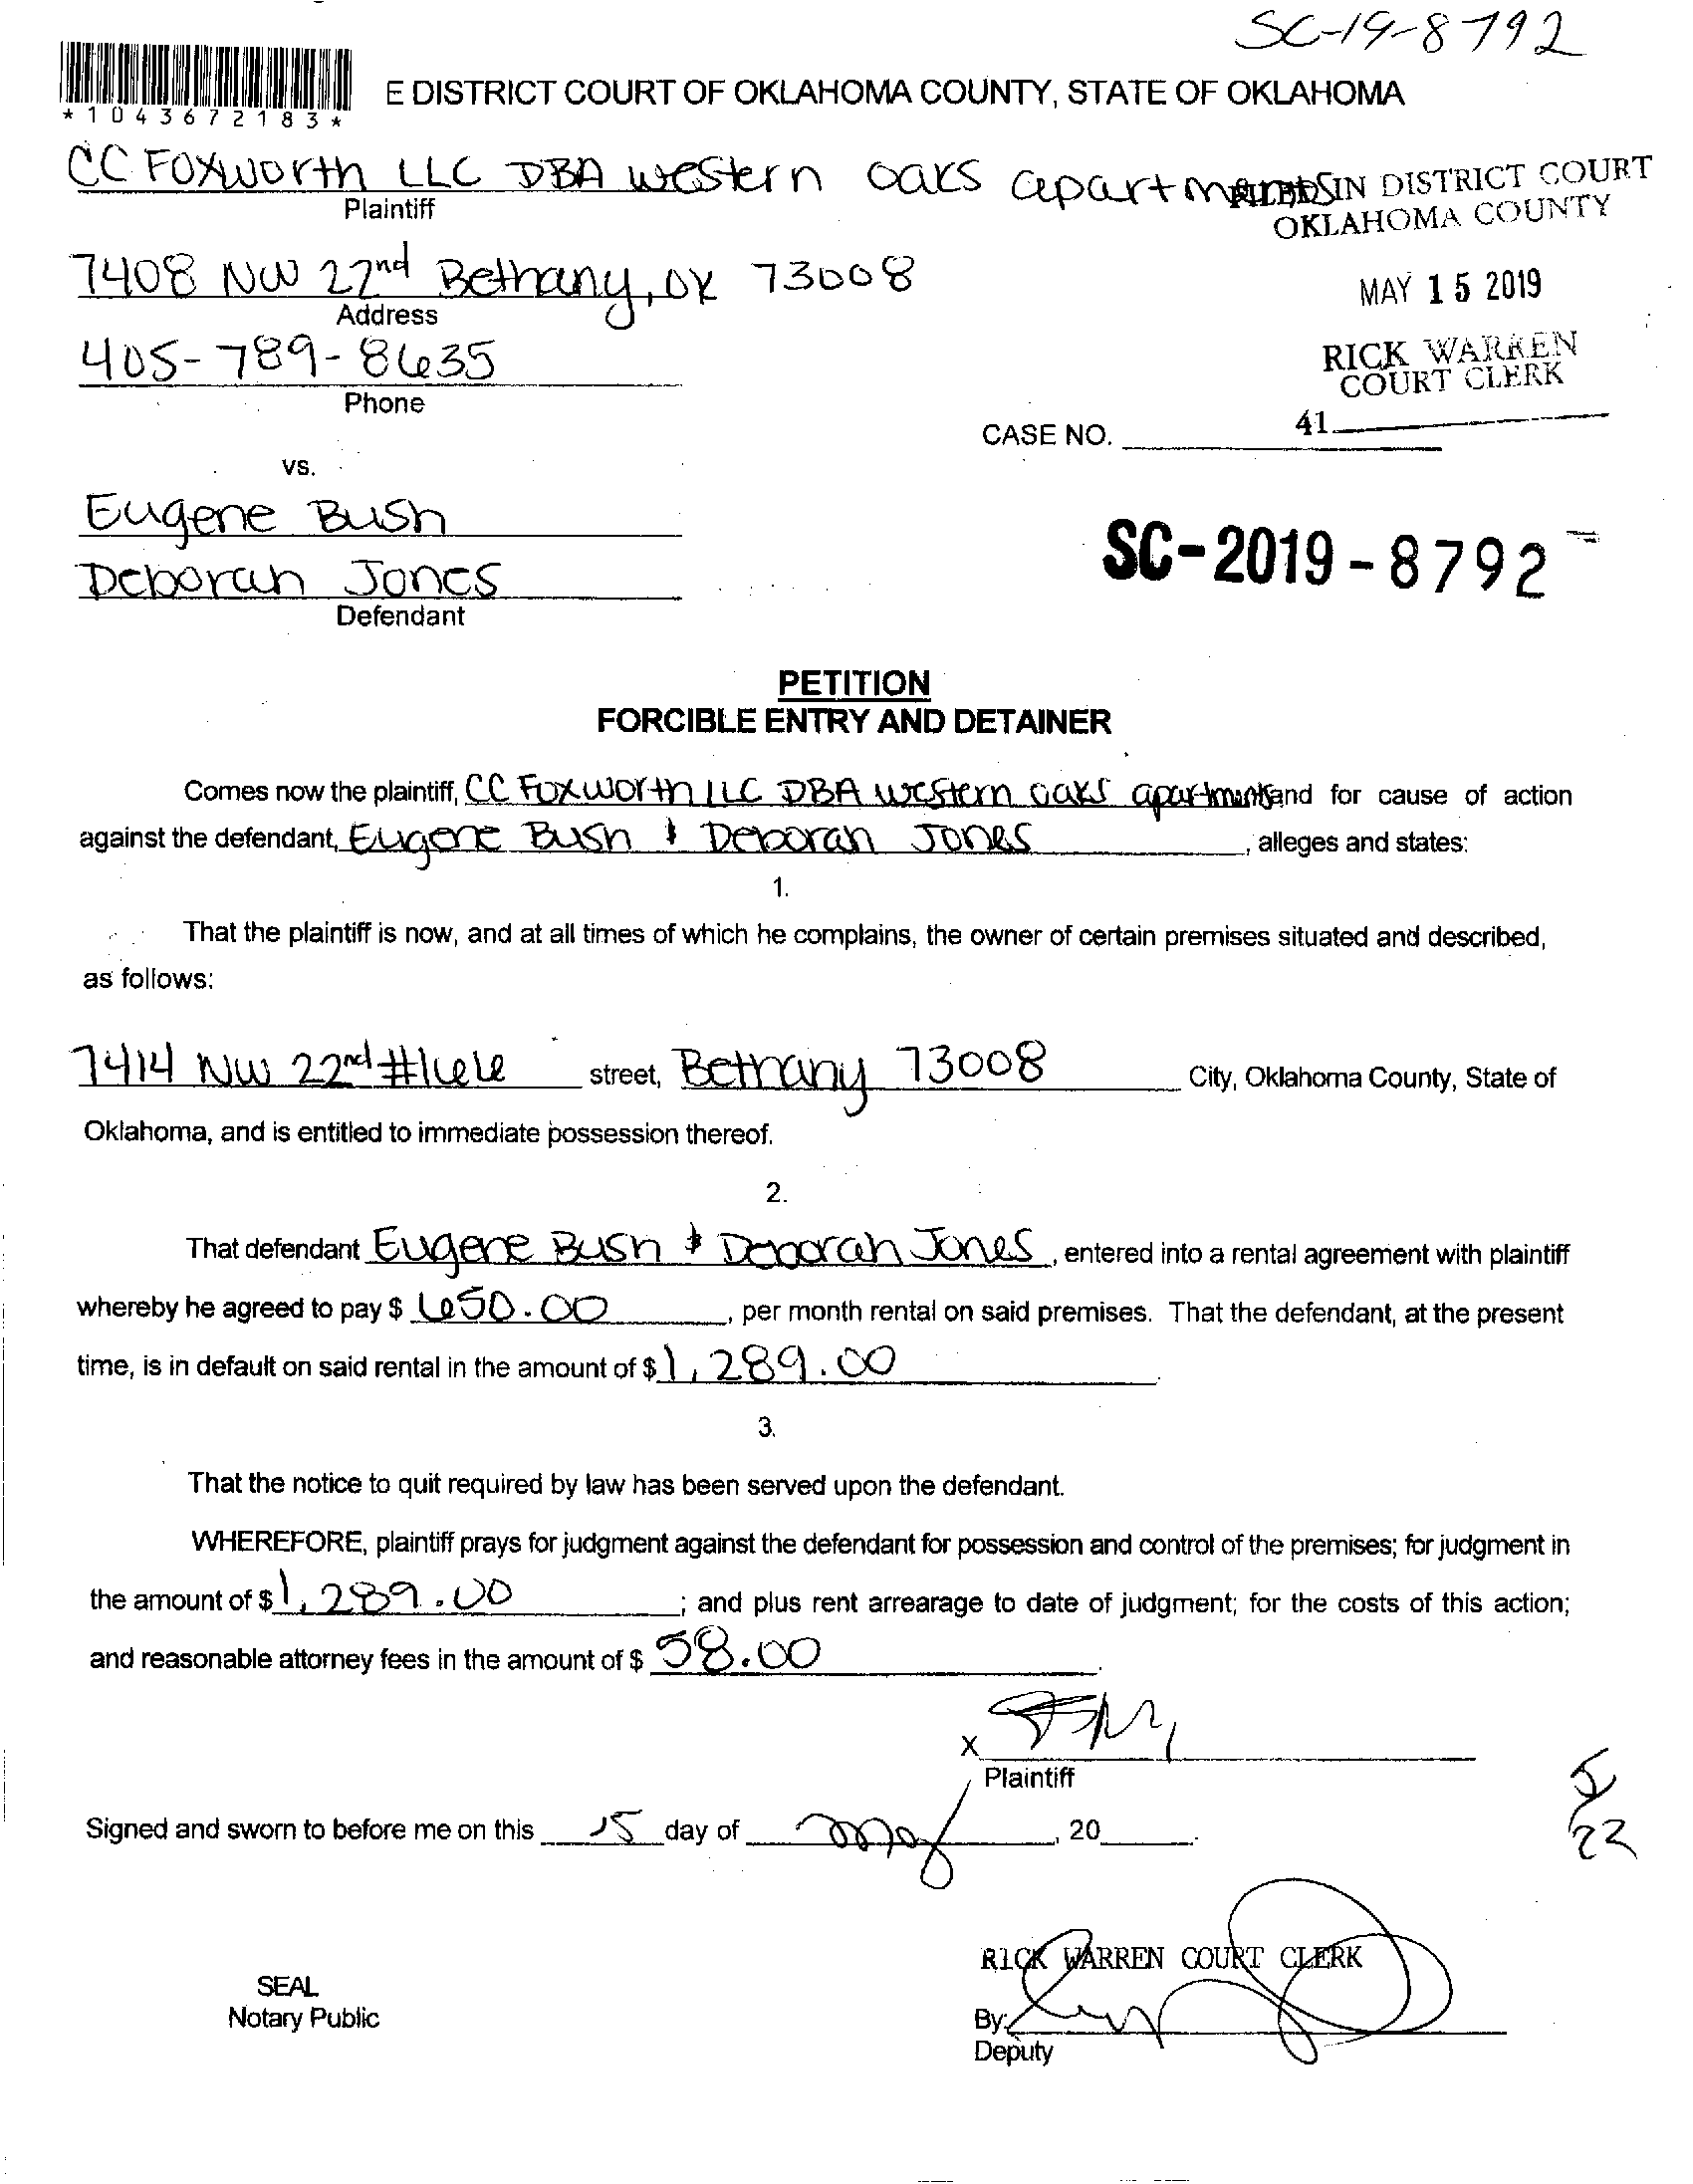 SC-19-8792
E DISTRICT COURT OF OKLAHOMA COUNTY, STATE OF OKLAHOMA
*1043672183*
CC Foxworth LLC DBA western oaks apartments
FILED IN DISTRICT COURT
OKLAHOMA COUNTY
Plaintiff
7408 NW 22nd Bethany, OK 73008
MAY 15 2019
Address
405-789-8635
RICK WARREN
COURT CLERK
Phone
41
CASE NO.
vs.
Eugene Bush
SC-2019-8792
Deborah Jones
Defendant
PETITION
FORCIBLE ENTRY AND DETAINER
Comes now the plaintiff, CC Foxworth LLC DBA western oaks apartments and for cause of action
against the defendant, Eugene Bush & Deborah Jones, alleges and states:
1.
That the plaintiff is now, and at all times of which he complains, the owner of certain premises situated and described,
as follows:
7414 NW 22nd #166 street, Bethany 73008 City, Oklahoma County, State of
Oklahoma, and is entitled to immediate possession thereof.
2.
That defendant Eugene Bush & Deborah Jones, entered into a rental agreement with plaintiff
whereby he agreed to pay $ 650.00, per month rental on said premises. That the defendant, at the present
time, is in default on said rental in the amount of $ 1,289.00.
3.
That the notice to quit required by law has been served upon the defendant.
WHEREFORE, plaintiff prays for judgment against the defendant for possession and control of the premises; for judgment in
the amount of $ 1,289.00; and plus rent arrearage to date of judgment; for the costs of this action;
and reasonable attorney fees in the amount of $ 58.00.
X
Plaintiff
Signed and sworn to before me on this 15 day of May, 20.
22
RICK WARREN COURT CLERK
SEAL
Notary Public
By:
Deputy